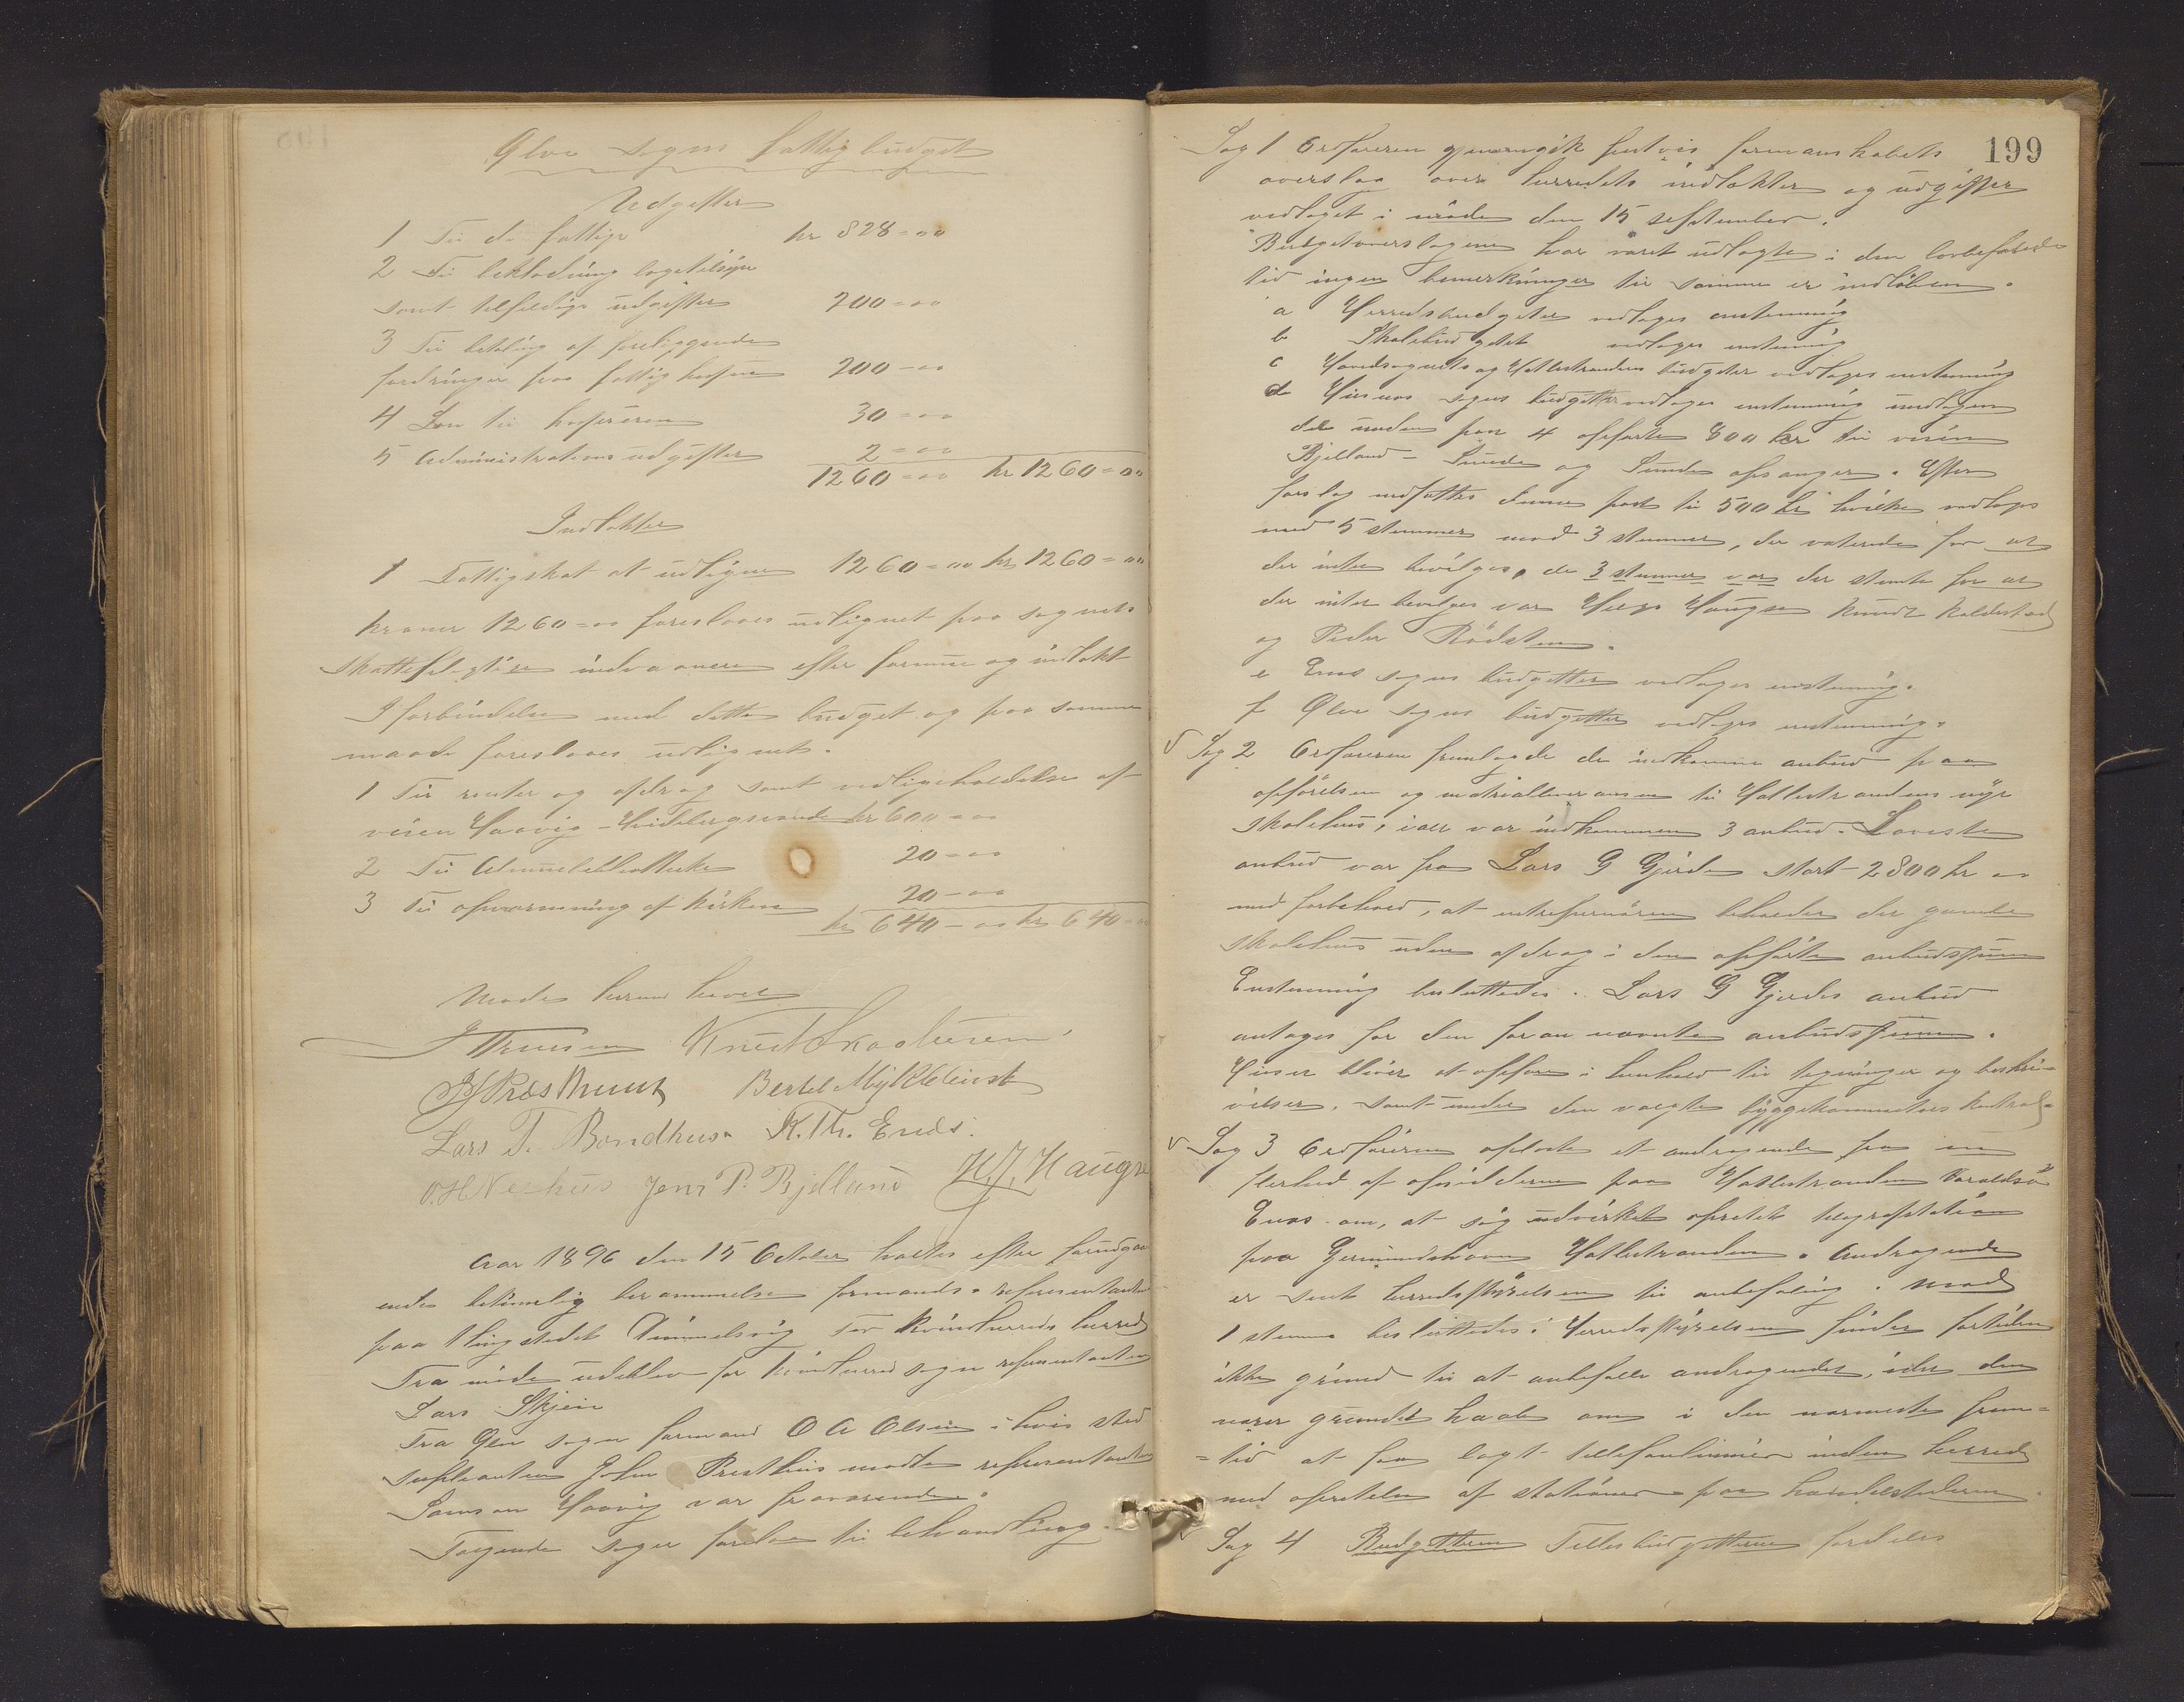 Ølve sogns fattigbudget
Udgifter
1 Til de fattige kr 828=00
2 Til beklædning lægetilsyn
samt tilfeldige udgifter 200=00
3 Til betaling af foreliggende
fordringer paa fattigkassen 200-00
4 Løn til kassereren 30=00
5 Administrations udgifter 2=00
1260=00 kr 1260=00
Indtækter
1 Fattigskat at udligne 1260=00 kr 1260=00
kroner 1260=00 foreslaaes udlignet paa sognets
skattepligtige indvaanere efter formue og indtækt
I forbindelse med dette budget og paa samme
maade foreslaaes udlignet.
1 Til renter og afdrag samt vedligeholdelse af
veien Haavig - kr 600=00
2 Til Almuebibliotheker 20=00
3 Til opvarmning af kirken 20-00
kr 640-00 kr 640=00
Mødet herved hævet
Knut Skaaluren
Bertel Myklebust
Lars T. Bondhus K. Th. Enes.
O.H Nerhus Jens P. Bjelland H.J. Haugse
Aar 1896 den 15 October holdtes efter forudgaa
ende betimelig berammelse formands- representantmøde
paa thingstedet Dimmelsvig for Kvindherreds herred
Fra møde udeblev for Kvindherred sogn representanten
Lars Skjein
Fra Ølve sogn formand O A Olsen i hvis sted
supleanten John Presthus mødte representanten
Samson Haavig var fraværende.
Følgende sager forelaa til behandling.
199
Sag 1 Ordføreren gjennemgik postvis formannskabets
overslag over herredets indtækter og udgifter
vedtaget i møde den 15 september.
Budgetoverslagene har været udlagte i den lovbefalede
tid ingen bemerkninger til samme er indløbne.
a Herredsbudgetet vedtages enstemmig
b Skolebudgetet vedtages enstemmig
c Hovedsognets og Hatlestrandens budgeter vedtages enstemmig
d Husnes sogns budgetter vedtages enstemmig undtagen
den under post 4 opførte 800 kr til veien
Bjelland - Sunde og Sunde Opsanger. Efter
forslag nedsattes denne post til 500 kr hvilke vedtages
med 5 stemmer mod 3 stemmer, der voterede for at
der intet bevilges, de 3 stemmer var der stemte for at
der intet bevilges var Helge Haugse Knudt Kaldestad
og Peder Rødsten.
e Enes sogns budgetter vedtages enstemmig.
f Ølve sogns budgetter vedtages enstemmig.
Sag 2 Ordføreren fremlagde de indkomne anbud paa
opførelsen og materialleveransen til Hatlestrandens nye
skolehus, i alt var indkommen 3 anbud. Laveste
anbud var fra Lars G Gjerde stort - 2800 kr 00
med forbehold, at entreprenøren beholder det gamle
skolehus uden afdrag i den opførte anbudssum
Enstemmig besluttedes. Lars G Gjerdes anbud
antages for den foran nævnte anbudssum.
Huset bliver at opføre i henhold til tegninger og beskri=
velser, samt under den valgte byggekommites kontrol.
Sag 3 Ordføreren oplæste et andragende fra en
flerhed af opsidderne paa Hatlestranden Varaldsø
Enes om, at søg udvirket oprettet telegrafstation
paa Gjermundshavn Hatlestranden. Andragende
er sendt herredsstyrelsen til anbefaling. Mod
1 stemme besluttedes: Herredsstyrelsen finder fortiden
ikke grund til at anbefalle andragendet, idet den
nærer grundet haab om i den nærmeste frem=
=tid at faa lagt tellefonlinnier inden herred
med oprettelse af stationer paa handelstederne.
Sag 4 Budgetterne Fellesbudgetterne fordeles